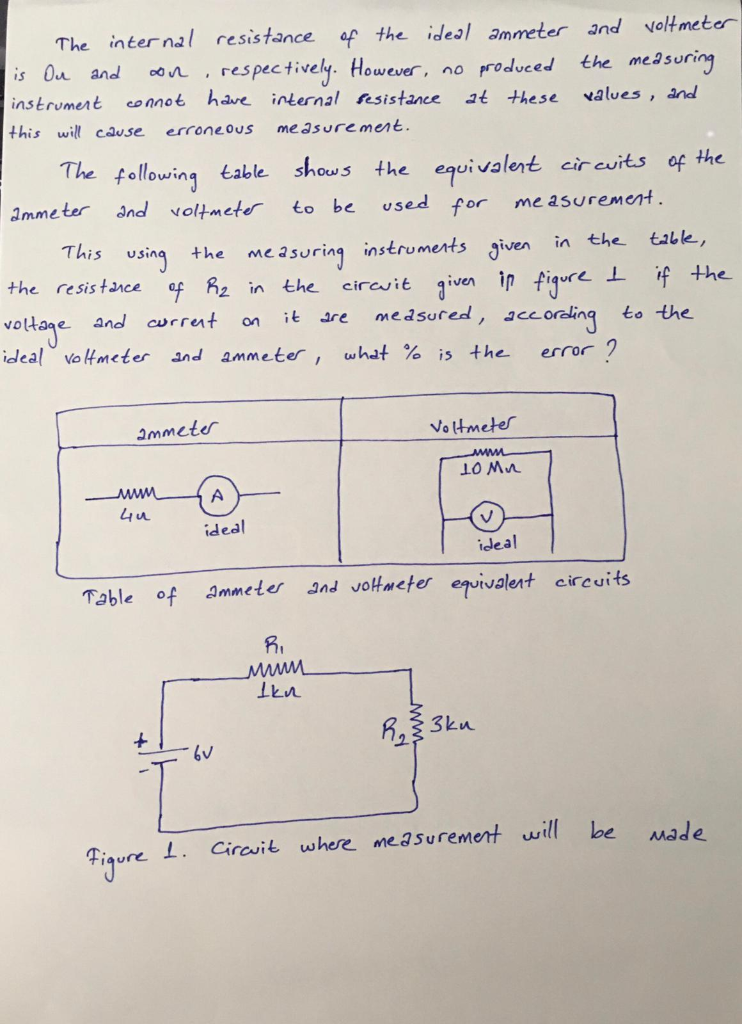 The internal resistance of the ideal ammeter and voltmeter
is 0Ω and ∞Ω, respectively. However, no produced the measuring
instrument connot have internal resistance at these values, and
this will cause erroneous measurement.
The following table shows the equivalent circuits of the
ammeter and voltmeter to be used for measurement.
This using the measuring instruments given in the table,
the resistance of R2 in the circuit given in figure 1 if the
voltage and current on it are measured, according to the
ideal voltmeter and ammeter, what % is the error?
ammeter
Voltmeter
10 MΩ
A
4Ω
ideal
V
ideal
Table of ammeter and voltmeter equivalent circuits
R1
1kΩ
R2 3kΩ
+
- 6V
Figure 1. Circuit where measurement will be made